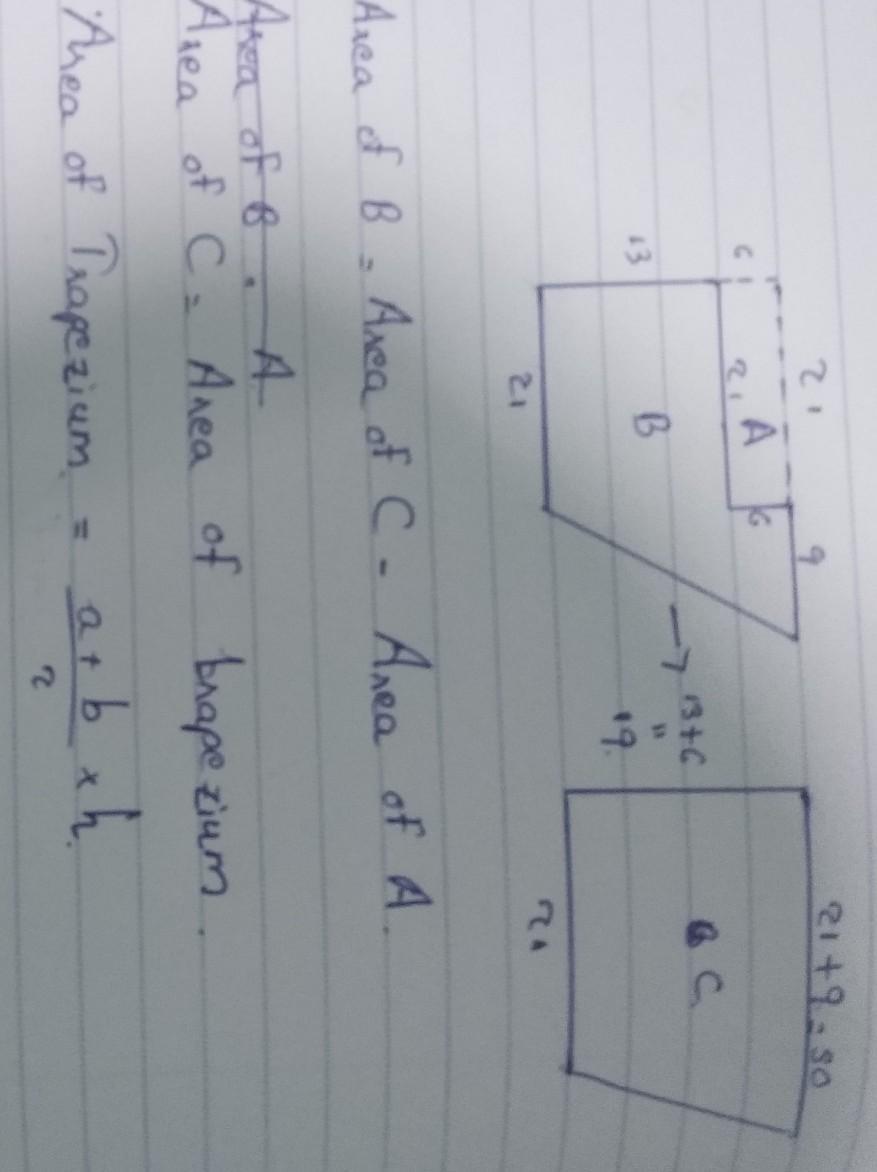 21 9 21+9=30
6 A 6
21
13 B → 13+6 C
"
19.
21 21
Area of B = Area of C - Area of A.
Area of B = A
Area of C = Area of trapezium.
Area of Trapezium = a + b x h.
2